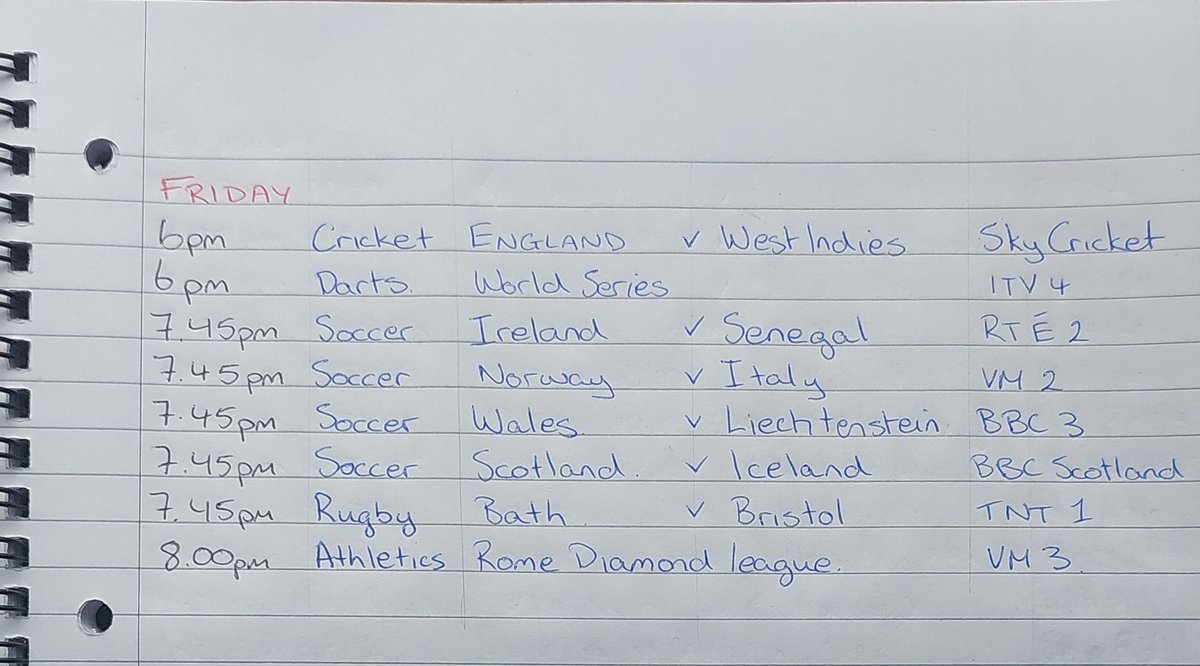 FRIDAY
6pm Cricket ENGLAND v West Indies Sky Cricket
6pm Darts. World Series ITV 4
7.45pm Soccer Ireland v Senegal RTÉ 2
7.45pm Soccer Norway v Italy VM 2
7.45pm Soccer Wales v Liechtenstein BBC 3
7.45pm Soccer Scotland. v Iceland BBC Scotland
7.45pm Rugby Bath v Bristol TNT 1
8.00pm Athletics Rome Diamond league. VM 3